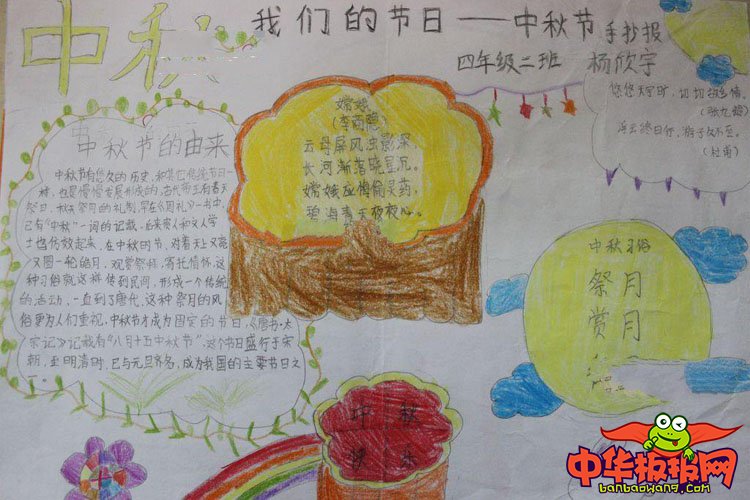 中秋
我们的节日——中秋节手抄报
四年级二班 杨欣宇
悠悠天宇旷,切切故乡情。
(张九龄)
浮云终日行,游子久不至。
(杜甫)
嫦娥
(李商隐)
云母屏风烛影深,
长河渐落晓星沉。
嫦娥应悔偷灵药,
碧海青天夜夜心。
中秋节的由来
中秋节有悠久的历史,和其它传统节日一
样,也是慢慢发展形成的,古代帝王有春天
祭日,秋天祭月的礼制,早在《周礼》一书中,
已有“中秋”一词的记载。后来贵人和文人学
士也仿效起来,在中秋时节,对着天上又亮
又圆一轮皓月,观赏祭拜,寄托情怀,这
种习俗就这样传到民间,形成一个传统
的活动,一直到了唐代,这种祭月的风
俗更为人们重视,中秋节才成为固定的节日,《唐书·太
宗记》记载有“八月十五中秋节”,这个节日盛行于宋
朝,至明清时,已与元旦齐名,成为我国的主要节日之
一。
中秋习俗
祭月
赏月
中秋
快乐
中华板报网
banbaowang.com